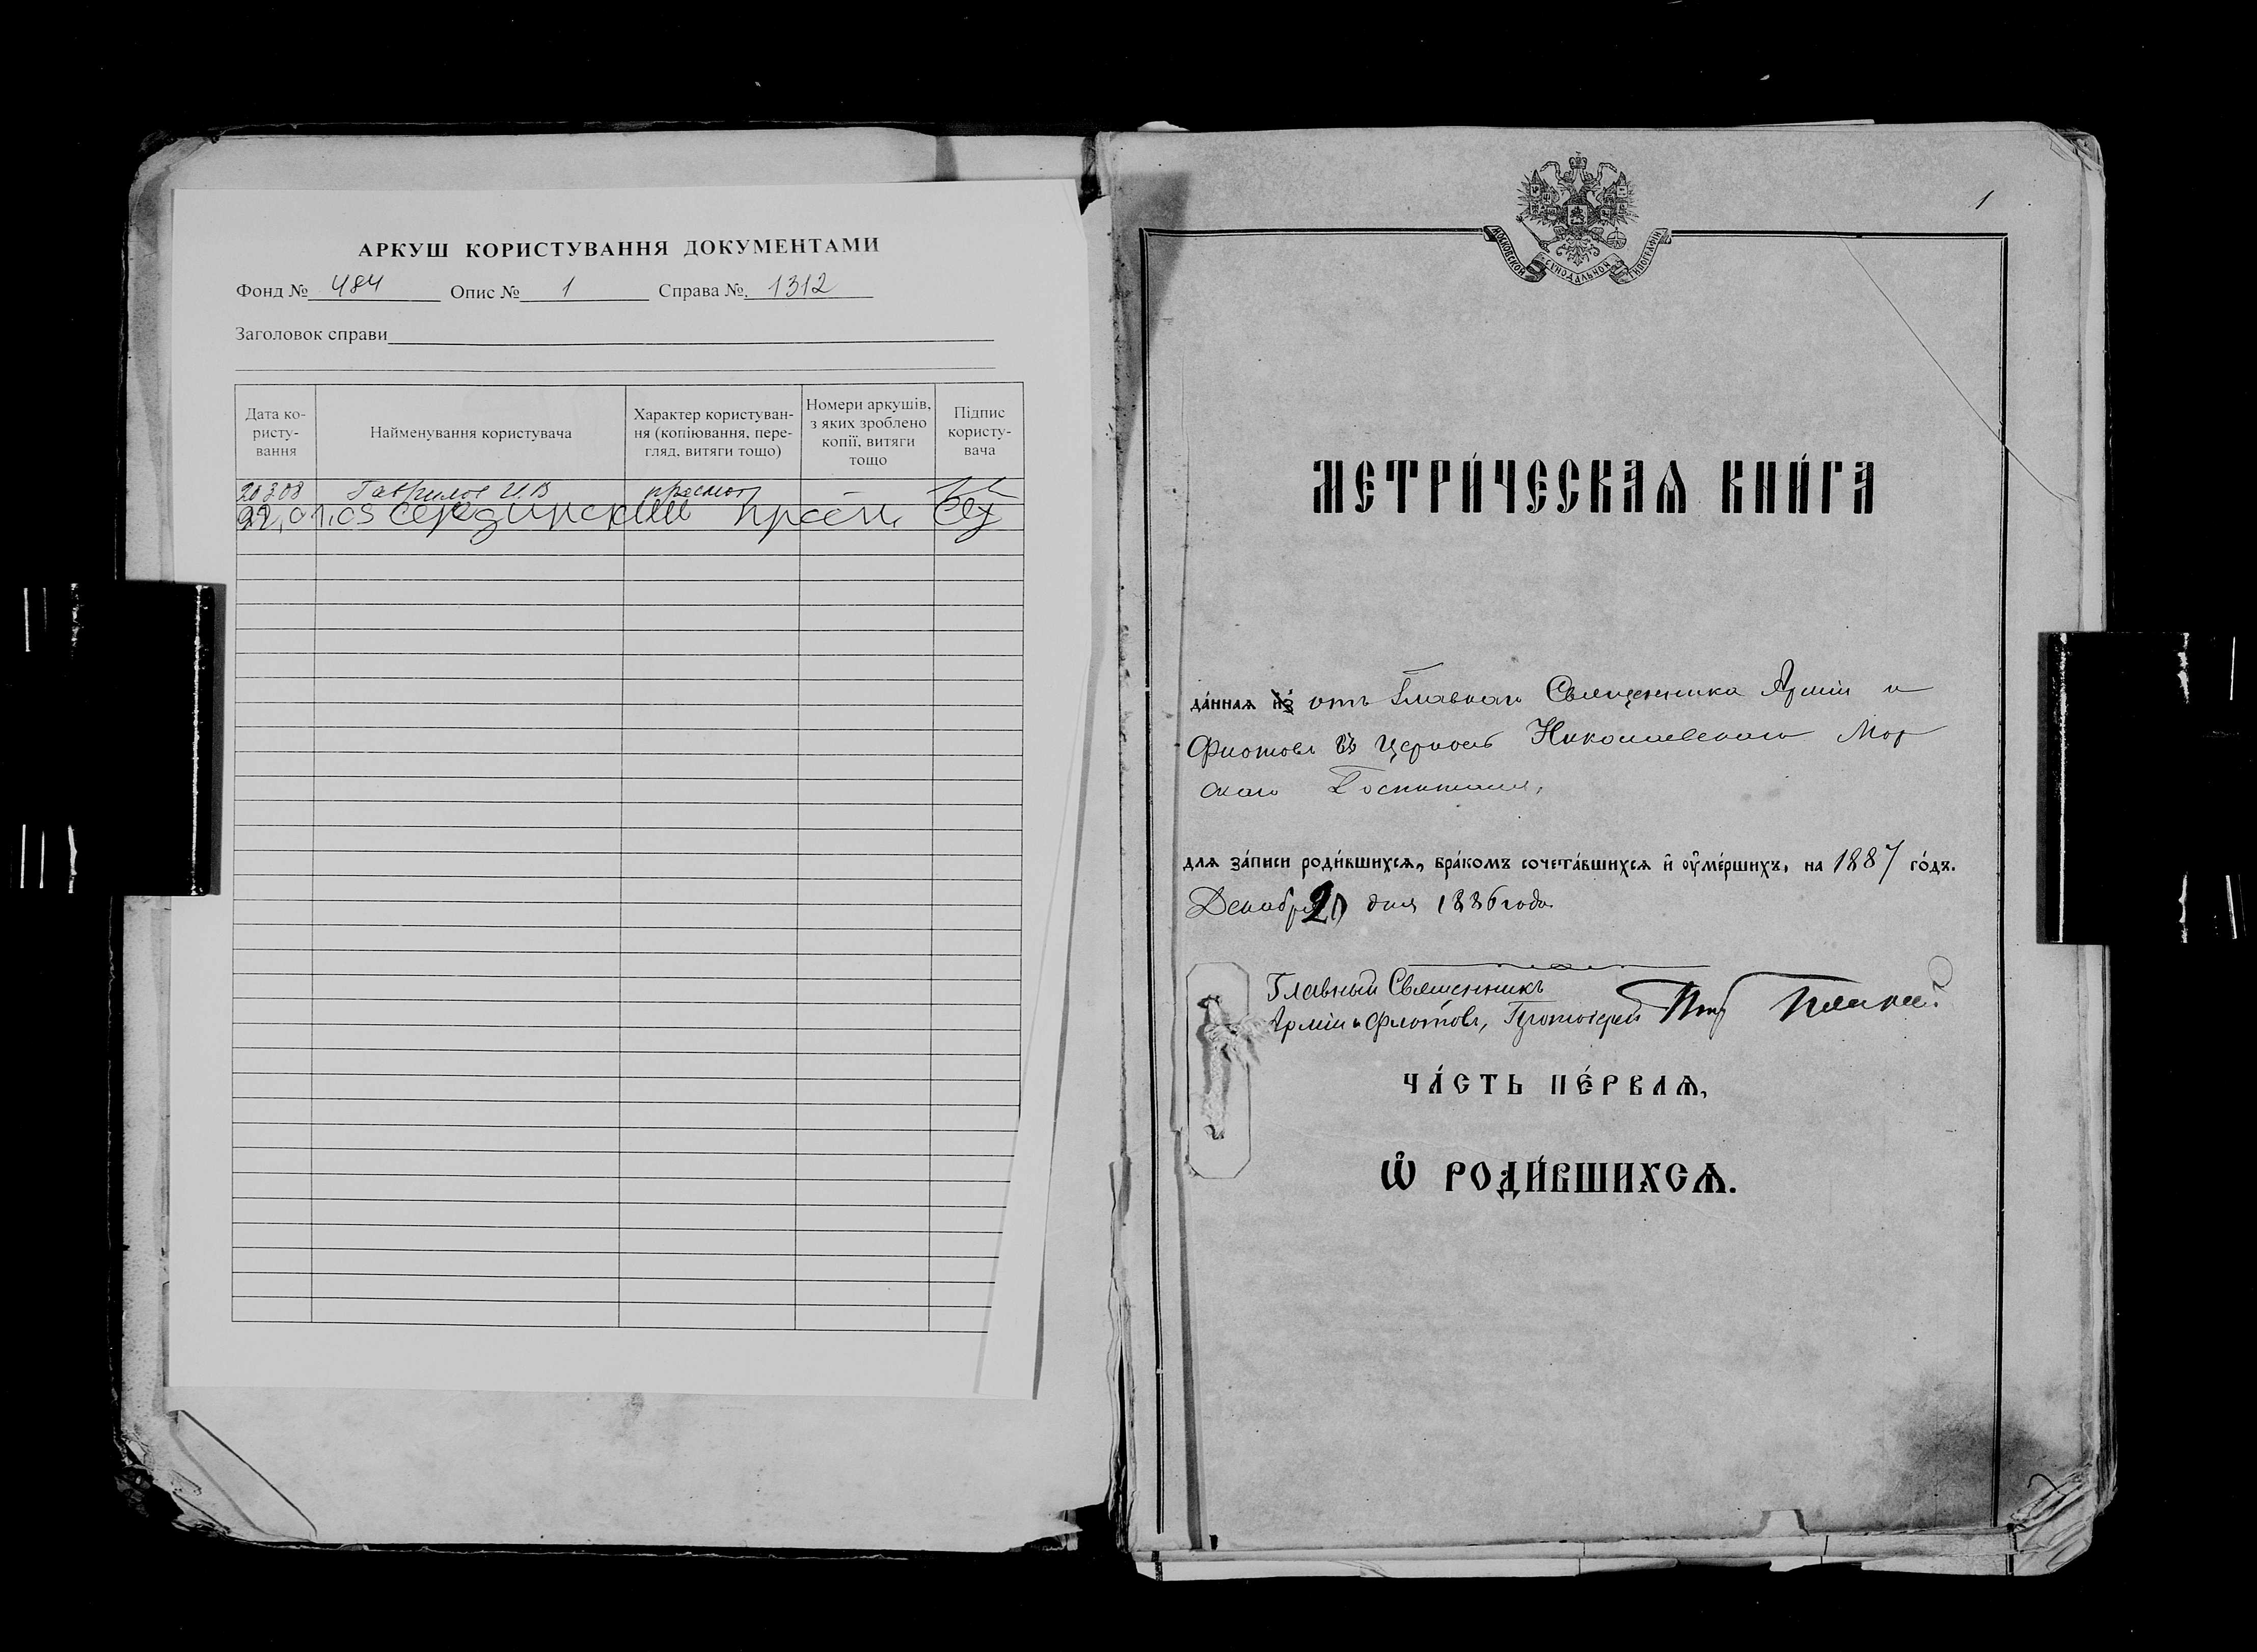 АРКУШ КОРИСТУВАННЯ ДОКУМЕНТАМИ
Фонд № 484 Опис № 1 Справа № 1312
Заголовок справи
Дата ко-
ристу-
вання
Найменування користувача
Характер користуван-
ня (копіювання, пере-
гляд, витяги тощо)
Номери аркушів,
з яких зроблено
копії, витяги
тощо
Підпис
користу-
вача
20 3 08 Гаврилов И.В просмотр —
просм.
1
МОСКОВСКОЙ СУНОДАЛЬНОЙ ТИПОГРАФІИ
МЕТРИ́ЧЕСКАѦ КНИ́ГА
да́ннаѧ из̾ отъ Главнаго Священника Арміи и
Флотовъ въ церковь Николаевскаго Мор
скаго Госпиталя,
для за́писи роди́вшихсѧ, бра́комъ сочета́вшихсѧ и҆ ᲂу҆ме́ршихъ, на 1887 го́дъ.
Декабря 20 дня 1886 года
Главный Священникъ
Арміи и Флотовъ, Протоіерей
ЧА́СТЬ ПЕ́РВАѦ,
Ѡ҆ РОДИ́ВШИХСѦ.